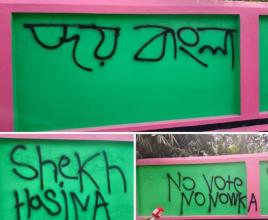 জয় বাংলা
Shekh
HasiNA
No Vote
No NowKA